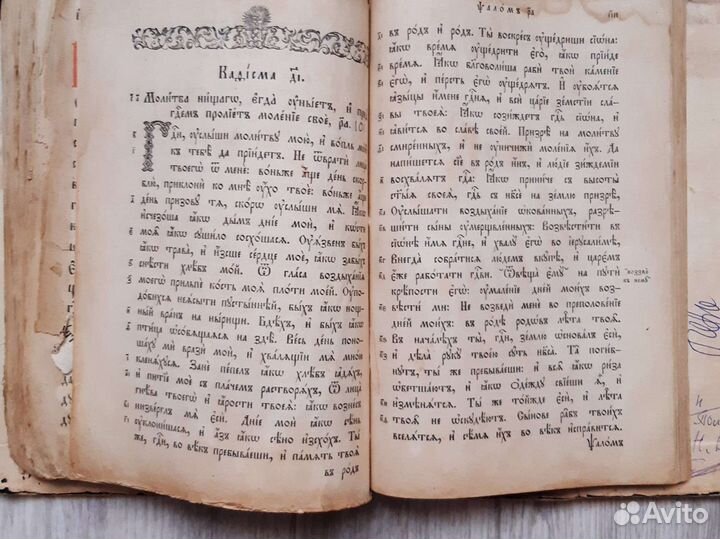 Каѳі́сма д҃і.
Моли́тва ни́щагѡ, є҆гда̀ ᲂу҆ны́етъ, и҆ пре
гдⷭ҇емъ проліе́тъ моле́ніе своѐ, р҃а.
Гдⷭ҇и, ᲂу҆слы́ши моли́тву мою̀, и҆ во́пль мой
къ тебѣ̀ да прїи́детъ. Не ѿвратѝ лица̀
твоегѡ̀ ѿ менє̀: во́ньже а҆́ще де́нь скор
блю̀, приклонѝ ко мнѣ̀ ᲂу҆́хо твоѐ: во́ньже а҆́ще
де́нь призову́ тѧ, ско́рѡ ᲂу҆слы́ши мѧ̀. Ꙗ҆́кѡ
и҆счезо́ша ꙗ҆́кѡ ды́мъ дні́е мой, и҆ кѡ́сти
моѧ̑ ꙗ҆́кѡ суши́ло сосхо́шасѧ. Оу҆ѧ́звенъ бы́хъ
ꙗ҆́кѡ трава̀, и҆ и҆́зсше се́рдце моѐ, ꙗ҆́кѡ забы́хъ
снѣ́сти хлѣ́бъ мо́й. Ѿ гла́са воздыха́нїѧ
моегѡ̀ прильпѐ ко́сть моѧ̀ пло́ти мое́й. Оу҆по
до́бихсѧ неѧ́сыти пусты́ннѣй, бы́хъ ꙗ҆́кѡ нощ
ны́й вра́нъ на ны́рищи. Бдѣ́хъ, и҆ бы́хъ ꙗ҆́кѡ
пти́ца ѡ҆со́бѧщаѧсѧ на здѣ̀. Ве́сь де́нь поно
ша́ху мѝ вразѝ мой, и҆ хва́лѧщіи мѧ̀ мно́ю
кленѧ́хусѧ. Занѐ пе́пелъ ꙗ҆́кѡ хлѣ́бъ ꙗ҆дѧ́хъ,
и҆ питіѐ моѐ съ пла́чемъ растворѧ́хъ, Ѿ лица̀
гнѣ́ва твоегѡ̀ и҆ ꙗ҆́рости твоеѧ̀: ꙗ҆́кѡ вознє́съ
низве́рглъ мѧ̀ є҆сѝ. Дні́е мой ꙗ҆́кѡ сѣ́нь
ᲂу҆клони́шасѧ, и҆ а҆́зъ ꙗ҆́кѡ сѣ́но и҆зсхо́хъ. Ты́
же, гдⷭ҇и, во вѣ́къ пребыва́еши, и҆ па́мѧть твоѧ̀
въ ро́дъ
Ѱало́мъ р҃а
въ ро́дъ и҆ ро́дъ. Ты̀ воскре́съ ᲂу҆ще́дриши сїѡ́на:
ꙗ҆́кѡ вре́мѧ ᲂу҆ще́дрити є҆гѡ̀, ꙗ҆́кѡ прїи́де
вре́мѧ. Ꙗ҆́кѡ благоволи́ша рабѝ твоѝ ка́меніе
є҆гѡ̀, и҆ пе́рсть є҆гѡ̀ ᲂу҆ще́дрѧтъ. И҆ ᲂу҆боѧ́тсѧ
ꙗ҆зы́цы и҆́мене гдⷭ҇нѧ, и҆ всѝ ца́ріе зе́мстіи сла́
вы твоеѧ̀: Ꙗ҆́кѡ сози́ждетъ гдⷭ҇ь сїѡ́на, и҆
ꙗ҆ви́тсѧ во сла́вѣ свое́й. Призрѣ̀ на моли́тву
смире́нныхъ, и҆ не ᲂу҆ничижѝ моле́нїѧ и҆́хъ. Да
напи́шетсѧ сїѐ въ ро́дъ и҆́нъ, и҆ лю́діе зи́ждеміи
восхва́лѧтъ гдⷭ҇а: Ꙗ҆́кѡ прини́че съ высоты̀
ст҃ы́ѧ своеѧ̀, гдⷭ҇ь съ нб҃сѐ на зе́млю призрѣ̀,
Оу҆слы́шати воздыха́ніе ѡ҆кова́нныхъ, разрѣ
ши́ти сы́ны ᲂу҆мерщвле́нныхъ: Возвѣсти́ти въ
сїѡ́нѣ и҆́мѧ гдⷭ҇не, и҆ хвалу̀ є҆гѡ̀ во і҆ерⷭ҇али́мѣ,
Внегда̀ собра́тисѧ лю́демъ вку́пѣ, и҆ царе́мъ
є҆́же рабо́тати гдⷭ҇ви. Ѿвѣща̀ є҆му̀ на путѝ
крѣ́пости є҆гѡ̀: ᲂу҆мале́ніе дні́й мои́хъ воз
вѣстѝ мѝ: Не возведѝ менѐ въ преполове́ніе
дні́й мои́хъ: въ ро́дѣ родѡ́въ лѣ̑та твоѧ̑.
Въ нача́лѣхъ ты̀, гдⷭ҇и, зе́млю ѡ҆снова́лъ є҆сѝ,
и҆ дѣла̀ рукꙋ̀ твоє́ю сꙋ́ть нб҃са̀. Та̑ поги́б
нутъ, ты́ же пребыва́еши: и҆ всѧ̑ ꙗ҆́кѡ ри́за
ѡ҆бетша́ютъ, и҆ ꙗ҆́кѡ ѻ҆де́жду свіе́ши ѧ҆̀, и҆
и҆змѣнѧ́тсѧ. Ты́ же то́йжде є҆сѝ, и҆ лѣ̑та
твоѧ̑ не ѡ҆скудѣ́ютъ. Сы́нове ра̑бъ твои́хъ
вселѧ́тсѧ, и҆ сѣ́мѧ и҆́хъ во вѣ́къ и҆спра́витсѧ.
Ѱало́мъ
Avito